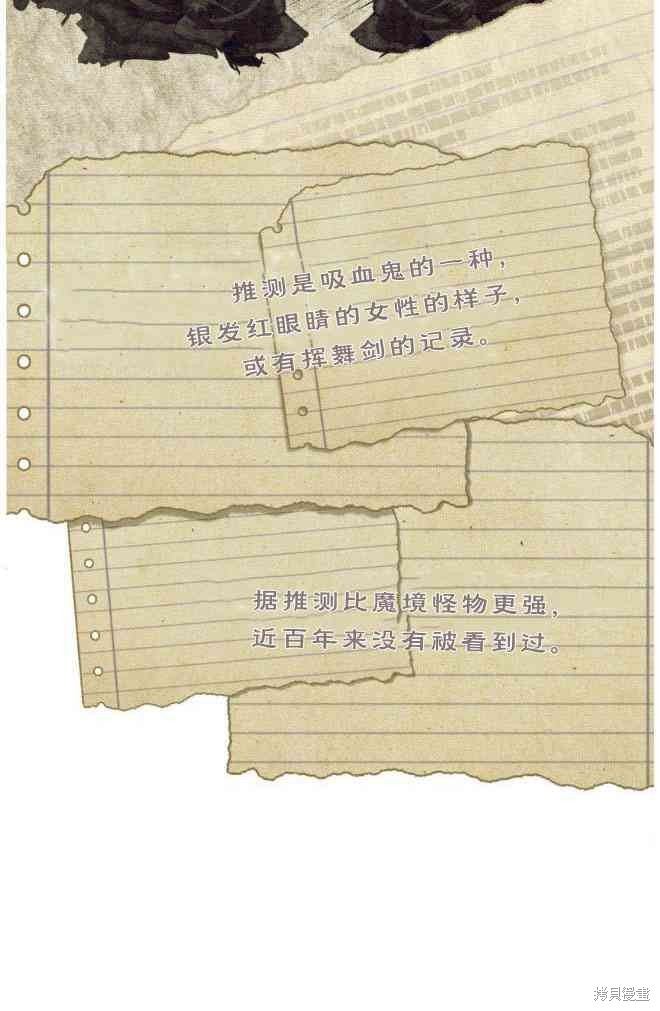 推测是吸血鬼的一种，
银发红眼睛的女性的样子，
或有挥舞剑的记录。
据推测比魔境怪物更强，
近百年来没有被看到过。
拷貝漫畫